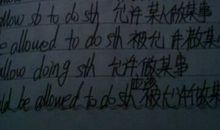 llow sb to do sth 允许某人做某事
be allowed to do sth 被允许做某事
llow doing sth 允许做某事
ld be allowed to do sth 被允许做某事